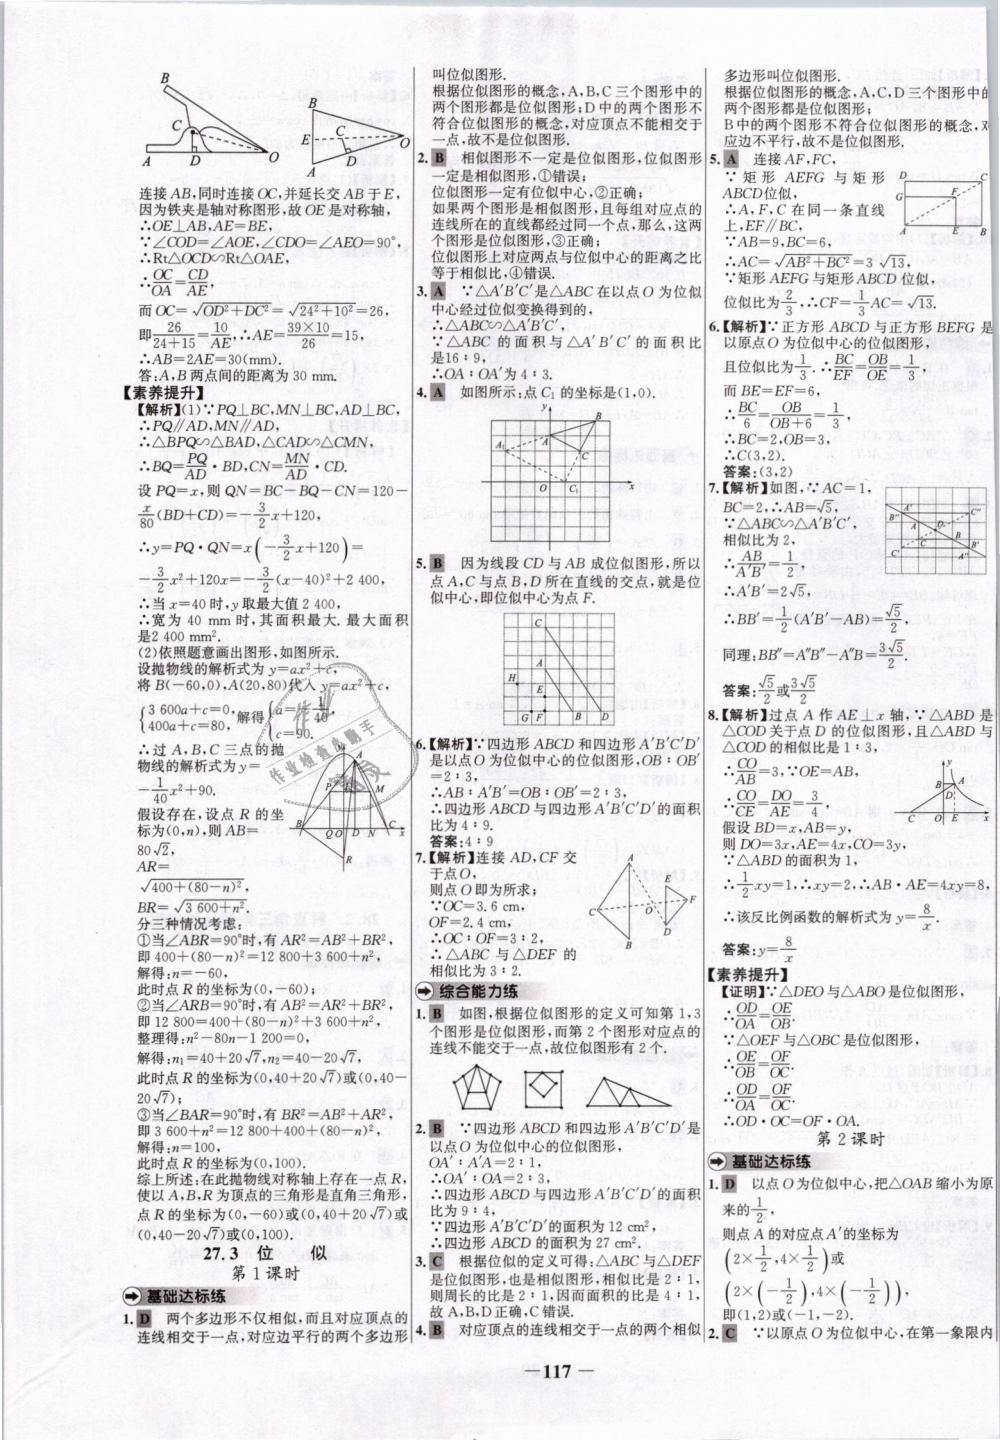 连接 AB,同时连接 OC,并延长交 AB 于 E,
因为铁夹是轴对称图形,故 OE 是对称轴,
∴OE⊥AB,AE=BE,
∵∠COD=∠AOE,∠CDO=∠AEO=90°,
∴Rt△OCD∽Rt△OAE,
∴OC/OA=CD/AE,
而 OC=√(OD²+DC²)=√(24²+10²)=26,
即26/(24+15)=10/AE,∴AE=(39×10)/26=15,
∴AB=2AE=30(mm).
答:A,B 两点间的距离为 30 mm.
【素养提升】
【解析】(1)∵PQ⊥BC,MN⊥BC,AD⊥BC,
∴PQ∥AD,MN∥AD,
∴△BPQ∽△BAD,△CAD∽△CMN,
∴BQ=PQ/AD·BD,CN=MN/AD·CD.
设 PQ=x,则 QN=BC-BQ-CN=120-
x/80(BD+CD)=-3/2x+120,
∴y=PQ·QN=x(-3/2x+120)=
-3/2x²+120x=-3/2(x-40)²+2 400,
∴当 x=40 时,y 取最大值 2 400,
∴宽为 40 mm 时,其面积最大.最大面积
是2 400 mm².
(2)依照题意画出图形,如图所示.
设抛物线的解析式为 y=ax²+c,
将 B(-60,0),A(20,80)代入 y=ax²+c,
{3 600a+c=0, 400a+c=80,解得{a=-1/40, c=90.
∴过 A,B,C 三点的抛
物线的解析式为 y=
-1/40x²+90.
假设存在,设点 R 的坐
标为(0,n),则 AB=
80√2,
AR=
√(400+(80-n)²),
BR=√(3 600+n²).
分三种情况考虑:
①当∠ABR=90°时,有 AR²=AB²+BR²,
即 400+(80-n)²=12 800+3 600+n²,
解得:n=-60,
此时点 R 的坐标为(0,-60);
②当∠ARB=90°时,有 AB²=AR²+BR²,
即 12 800=400+(80-n)²+3 600+n²,
整理得:n²-80n-1 200=0,
解得:n₁=40+20√7,n₂=40-20√7,
此时点 R 的坐标为(0,40+20√7)或(0,40-
20√7);
③当∠BAR=90°时,有 BR²=AB²+AR²,
即 3 600+n²=12 800+400+(80-n)²,
解得:n=100,
此时点 R 的坐标为(0,100).
综上所述:在此抛物线对称轴上存在一点 R,
使以 A,B,R 为顶点的三角形是直角三角形,
点 R 的坐标为(0,-60)或(0,40+20√7)或
(0,40-20√7)或(0,100).
27.3 位 似
第 1 课时
基础达标练
1. D 两个多边形不仅相似,而且对应顶点的
连线相交于一点,对应边平行的两个多边形
叫位似图形.
根据位似图形的概念,A,B,C 三个图形中的
两个图形都是位似图形;D 中的两个图形不
符合位似图形的概念,对应顶点不能相交于
一点,故不是位似图形.
2. B 相似图形不一定是位似图形,位似图形
一定是相似图形,①错误;
位似图形一定有位似中心,②正确;
如果两个图形是相似图形,且每组对应点的
连线所在的直线都经过同一个点,那么,这两
个图形是位似图形,③正确;
位似图形上对应两点与位似中心的距离之比
等于相似比,④错误.
3. A ∵△A′B′C′是△ABC 在以点 O 为位似
中心经过位似变换得到的,
∴△ABC∽△A′B′C′,
∵△ABC 的面积与△A′B′C′的面积比
是16∶9,
∴OA∶OA′为 4∶3.
4. A 如图所示:点 C₁ 的坐标是(1,0).
5. B 因为线段 CD 与 AB 成位似图形,所以
点 A,C 与点 B,D 所在直线的交点,就是位
似中心,即位似中心为点 F.
6.【解析】∵四边形 ABCD 和四边形 A′B′C′D′
是以点 O 为位似中心的位似图形,OB∶OB′
=2∶3,
∴AB∶A′B′=OB∶OB′=2∶3,
∴四边形 ABCD 与四边形 A′B′C′D′的面积
比为 4∶9.
答案:4∶9
7.【解析】连接 AD,CF 交
于点 O,
则点 O 即为所求;
∵OC=3.6 cm,
OF=2.4 cm,
∴OC∶OF=3∶2,
∴△ABC 与△DEF 的
相似比为 3∶2.
综合能力练
1. B 如图,根据位似图形的定义可知第 1,3
个图形是位似图形,而第 2 个图形对应点的
连线不能交于一点,故位似图形有 2 个.
2. B ∵四边形 ABCD 和四边形 A′B′C′D′是
以点 O 为位似中心的位似图形,
OA′∶A′A=2∶1,
∴OA′∶OA=2∶3,
∴四边形 ABCD 与四边形 A′B′C′D′的面积
比为 9∶4,
∵四边形 A′B′C′D′的面积为 12 cm²,
∴四边形 ABCD 的面积为 27 cm².
3. C 根据位似的定义可得:△ABC 与△DEF
是位似图形,也是相似图形,相似比是 2∶1,
则周长的比是 2∶1,因而面积的比是 4∶1,
故 A,B,D 正确,C 错误.
4. B 对应顶点的连线相交于一点的两个相似
多边形叫位似图形.
根据位似图形的概念,A,C,D 三个图形中的
两个图形都是位似图形;
B 中的两个图形不符合位似图形的概念,对
应边不平行,故不是位似图形.
5. A 连接 AF,FC,
∵矩形 AEFG 与矩形
ABCD位似,
∴A,F,C 在同一条直线
上,EF∥BC,
∵AB=9,BC=6,
∴AC=√(AB²+BC²)=3√13,
∵矩形 AEFG 与矩形 ABCD 位似,
位似比为2/3,∴CF=1/3AC=√13.
6.【解析】∵正方形 ABCD 与正方形 BEFG 是
以原点 O 为位似中心的位似图形,
且位似比为1/3,∴BC/EF=OB/OE=1/3,
而 BE=EF=6,
∴BC/6=OB/(OB+6)=1/3,
∴BC=2,OB=3,
∴C(3,2).
答案:(3,2)
7.【解析】如图,∵AC=1,
BC=2,∴AB=√5,
∵△ABC∽△A′B′C′,
相似比为 2,
∴AB/A′B′=1/2,
∴A′B′=2√5,
∴BB′=1/2(A′B′-AB)=√5/2,
同理:BB″=A″B″-A″B=3√5/2.
答案:√5/2或3√5/2
8.【解析】过点 A 作 AE⊥x 轴,∵△ABD 是
△COD 关于点 D 的位似图形,且△ABD 与
△COD 的相似比是 1∶3,
∴CO/AB=3,∵OE=AB,
∴CO/CE=DO/AE=3/4,
假设 BD=x,AB=y,
则 DO=3x,AE=4x,CO=3y,
∵△ABD 的面积为 1,
∴1/2xy=1,∴xy=2,∴AB·AE=4xy=8,
∴该反比例函数的解析式为 y=8/x.
答案:y=8/x
【素养提升】
【证明】∵△DEO与△ABO是位似图形,
∴OD/OA=OE/OB.
∵△OEF 与△OBC 是位似图形,
∴OE/OB=OF/OC.
∴OD/OA=OF/OC.
∴OD·OC=OF·OA.
第 2 课时
基础达标练
1. D 以点 O 为位似中心,把△OAB 缩小为原
来的1/2,
则点 A 的对应点 A′的坐标为
(2×1/2,4×1/2)或
(2×(-1/2),4×(-1/2)),
即(1,2)或(-1,-2).
2. C ∵以原点 O 为位似中心,在第一象限内
—117—